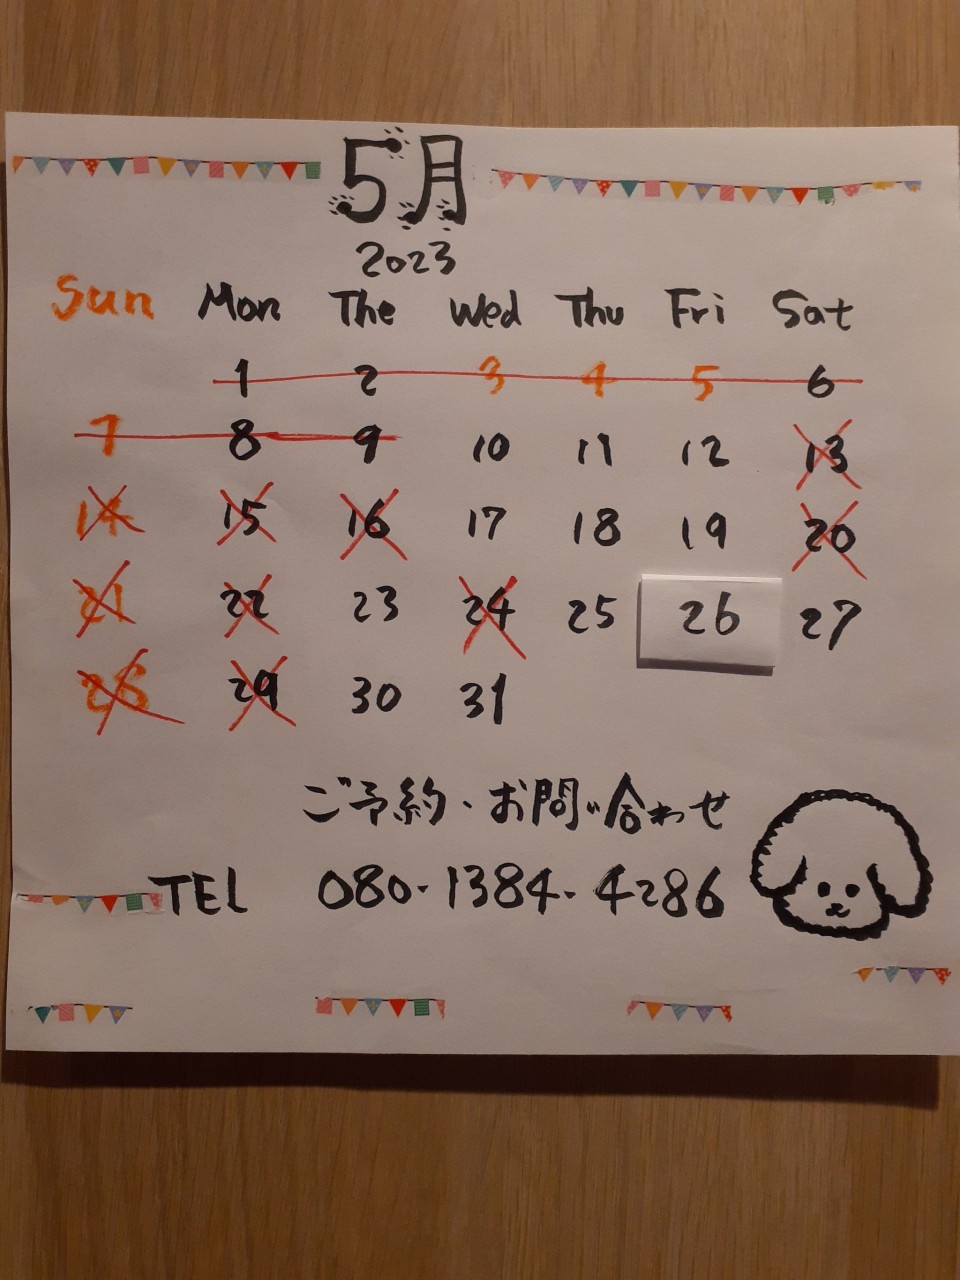 5月
2023
Sun Mon The Wed Thu Fri Sat
1 2 3 4 5 6
7 8 9 10 11 12 13
14 15 16 17 18 19 20
21 22 23 24 25 26 27
28 29 30 31
ご予約・お問い合わせ
TEL 080-1384-4286